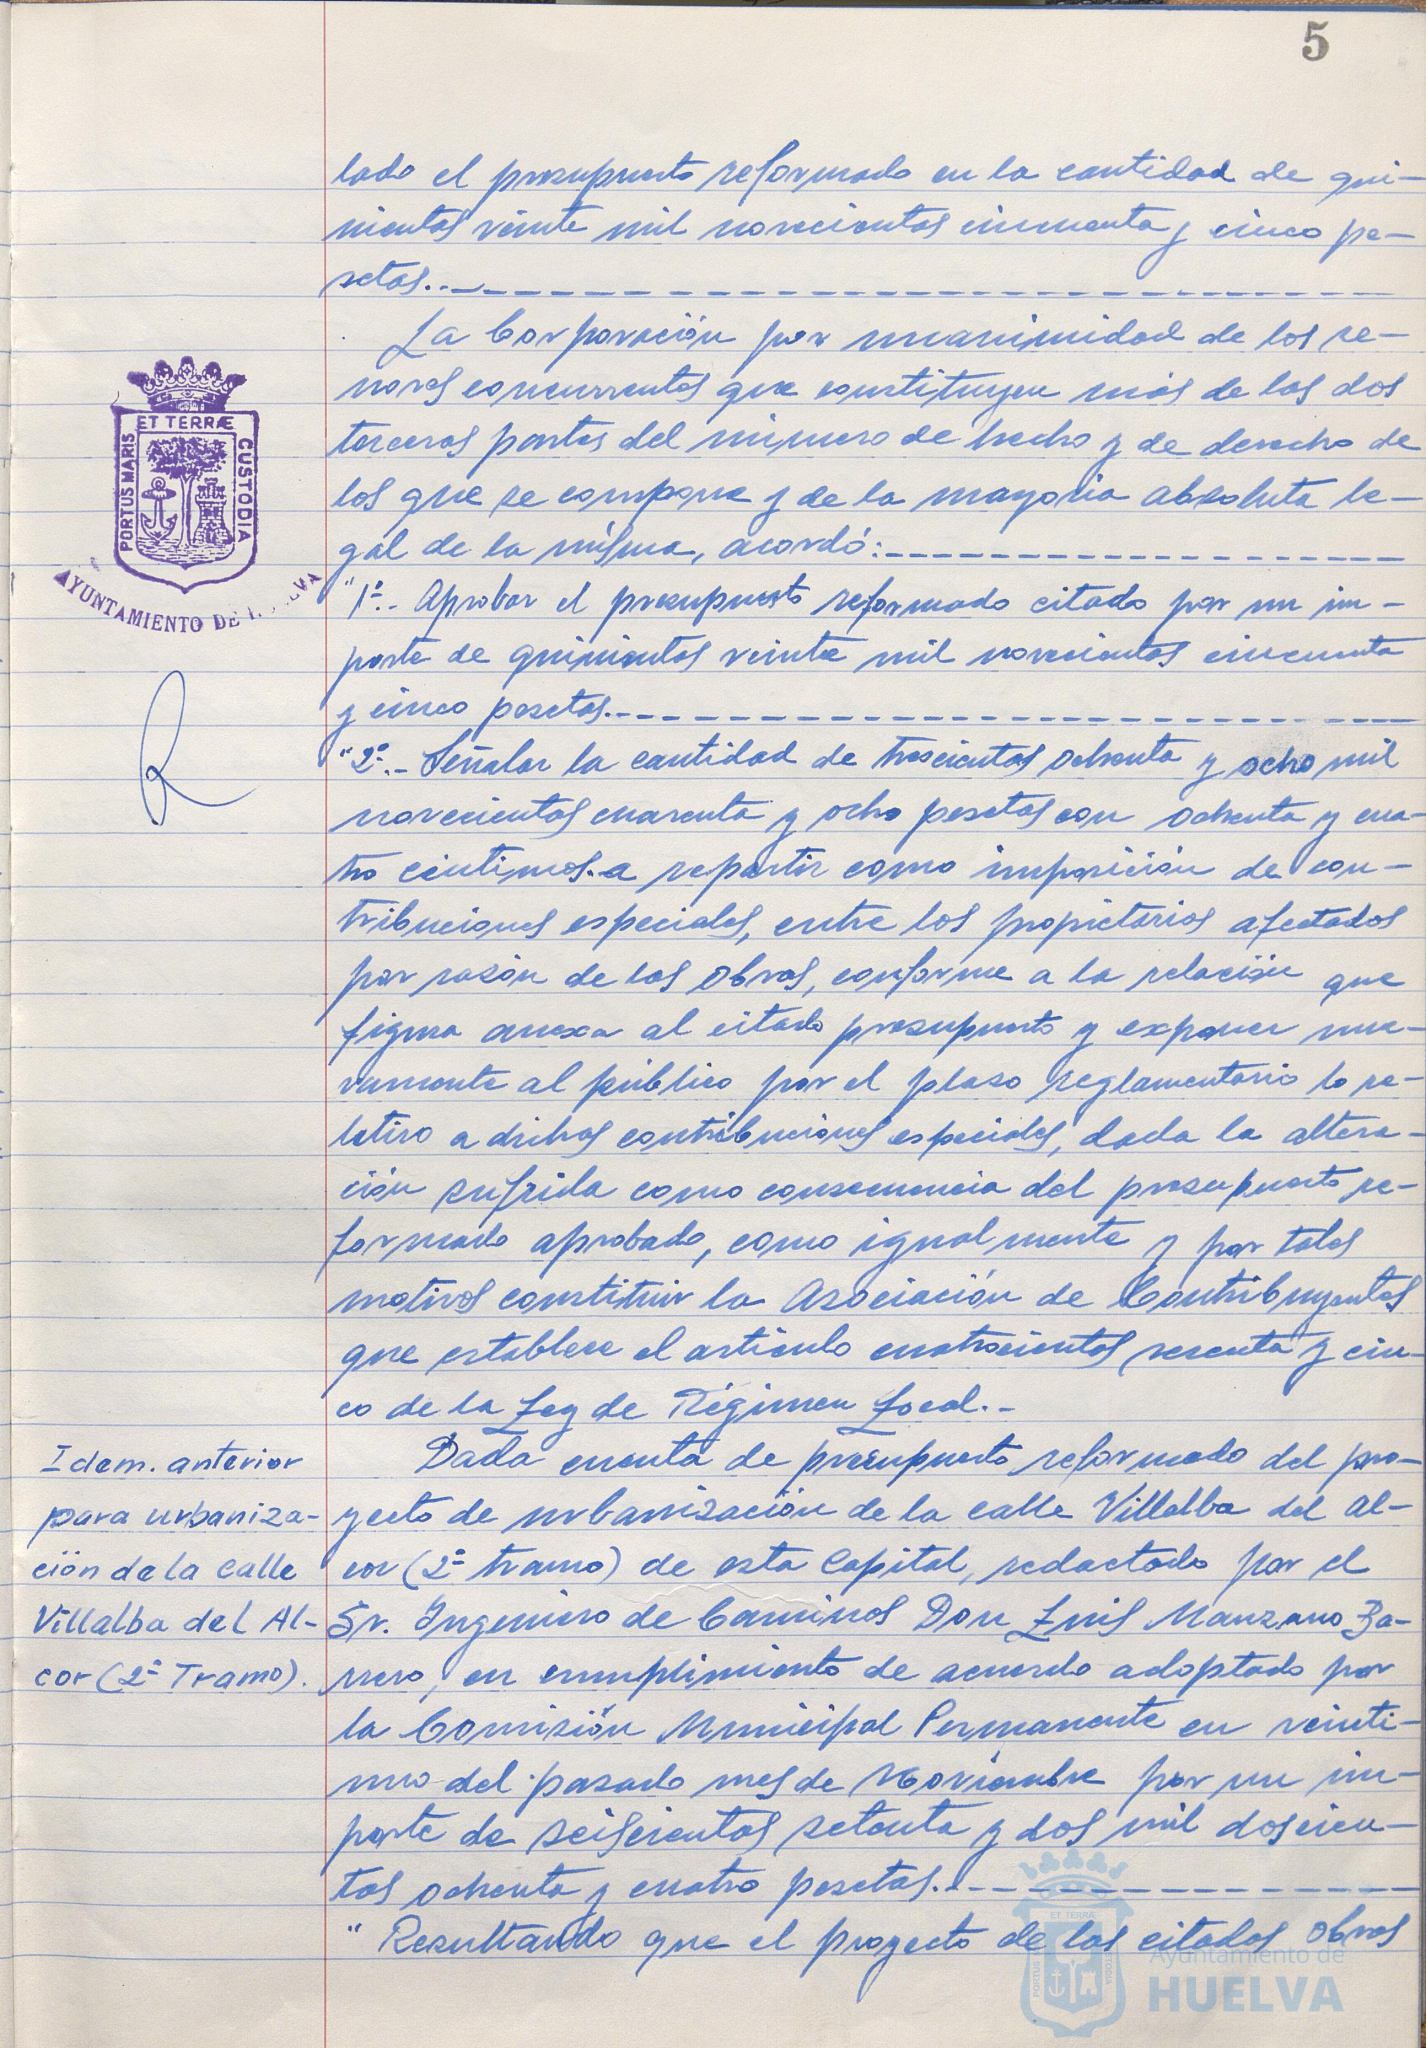 5
lado el presupuesto reformado en la cantidad de qui-
nientas veinte mil novecientas cincuenta y cinco pe-
setas..
La Corporación por unanimidad de los se-
nores concurrentes que constituyen más de las dos
terceras partes del número de hecho y de derecho de
los que se compone y de la mayoria absoluta le-
gal de la misma, acordó:
"1º.- Aprobar el presupuesto reformado citado por un im-
porte de quinientas veinte mil novecientas cincuenta
y cinco pesetas.
"2º.- Señalar la cantidad de trescientas ochenta y ocho mil
novecientas cuarenta y ocho pesetas con ochenta y cua-
tro céntimos.a repartir como imposición de con-
tribuciones especiales, entre los propietarios afectados
por razón de las obras, conforme a la relación que
figura anexa al citado presupuesto y exponer nue-
vamente al público por el plazo reglamentario lo re-
lativo a dichas contribuciones especiales, dada la altera-
ción sufrida como consecuencia del presupuesto re-
formado aprobado, como igualmente y por tales
motivos constituir la Asociación de Contribuyentes
que establece el articulo cuatrocientos sesenta y cin-
co de la Ley de Régimen Local.-
Dada cuenta de presupuesto reformado del pro-
yecto de urbanización de la calle Villalba del Al-
cor (2º tramo) de esta Capital, redactado por el
Sr. Ingeniero de Caminos Don Luis Manzano Ba-
rrero, en cumplimiento de acuerdo adoptado por
la Comisión Municipal Permanente en veinti-
uno del pasado mes de Noviembre por un im-
porte de seiscientas setenta y dos mil doscien-
tas ochenta y cuatro pesetas..
"Resultando que el proyecto de las citadas obras
Idem. anterior
para urbaniza-
ción de la calle
Villalba del Al-
cor (2º Tramo).
PORTUS MARIS
ET TERRÆ
CUSTODIA
AYUNTAMIENTO DE HUELVA
Ayuntamiento de
HUELVA